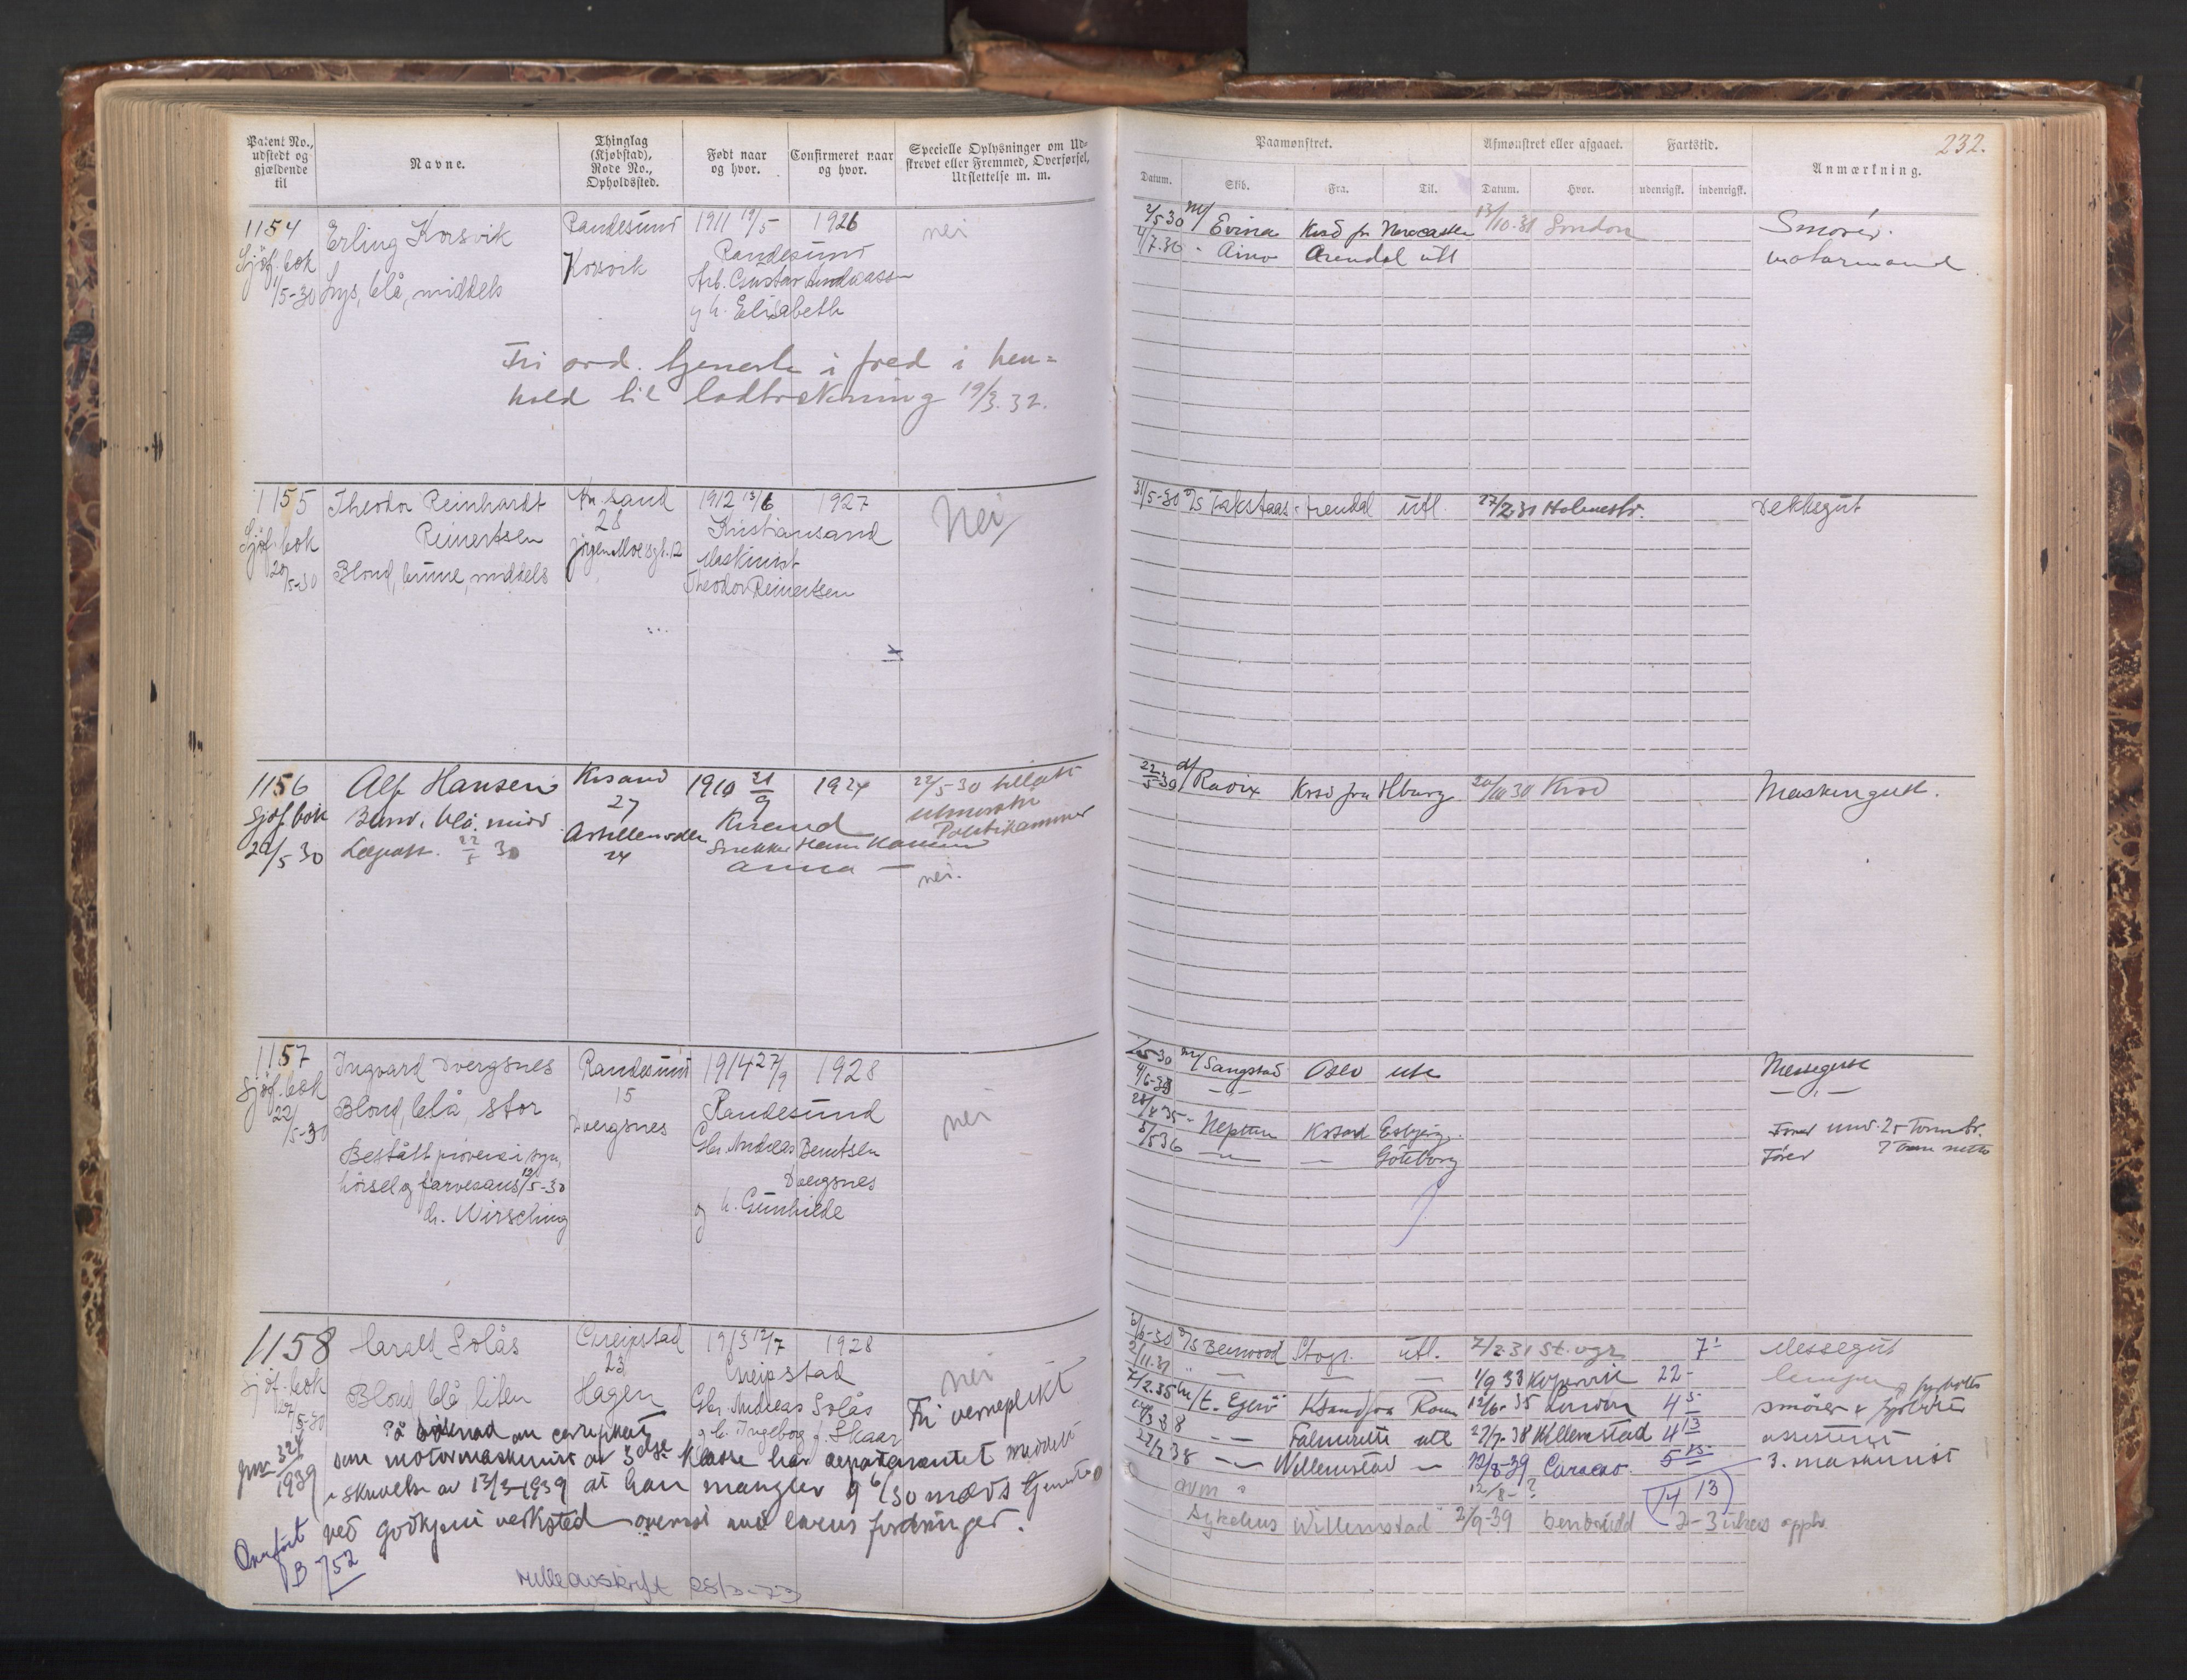 Patent No., udstedt og gjældende til
Navne.
Thinglag (Kjøbstad), Rode No., Opholdssted.
Født naar og hvor.
Confirmeret naar og hvor.
Specielle Oplysninger om Udskrevet eller Fremmed, Overførsel, Utslettelse m. m.
Paamønstret.
Afmønstret eller afgaaet.
Fartstid.
Anmærkning.
232.
Datum.
Skib.
Fra.
Til.
Datum.
Hvor.
udenrigsk.
indenrigsk.
1154
Sjøf. bok
1/5-30
Erling Korsvik
Lys, blå, middels
Randesund
Korsvik
1911 19/5
1926
Randesund
Arb. Gustav Andreassen
og h. Elisabeth
nei
Fri ord. tjeneste i fred i hen=
hold til lodtrekning 19/3. 32.
2/5 30 m/ Evina Krsd fr Newcastle 13/10.31 London
Smører.
7.30 - Aino Arendal utl
motormand
1155
Sjøf. bok
20/5-30
Theodor Reinhardt
Reinertsen
Blond, brune, middels
Kr.sand
28
Jørgen Moes gt. 12
1912 13/6
1927
Kristiansand
Maskinist
Theodor Reinertsen
Nei
31/5-30 D/S Takstaas Arendal utl. 27/2 31 Holmestr.
Dekksgut
1156
Sjøf. bok
22/5 30
Alf Hansen
Krsand
27
24
1910 21/9
1924
Krsand
Anna —
22/5-30 tillatt
utmønstr
Politikammer
nei.
22/5 30 d/ Ravix Krsd fra Hburg 20/10 30 Krsd
Maskingutt.
1157
Sjøf. bok
22/5-30
Ingvard Dvergsnes
Blond, blå, stor
Bestått prøver i syn,
hørsel og farvesans 19/5-30
dr. Wirsching
Randesund
15
Dvergsnes
1914 27/9
1928
Randesund
Gbr. Andreas Berntsen
Dvergsnes
og h. Gunhilde
nei
m/ Sangstad Oslo utl
Messegutt
— " —
— " —
Neptun Krsand Esbjerg.
Fører und. 25 Tonn br.
7 Tonn netto
5/5 36 — " — — Göteborg
Fører
1158
Sjøf. bok
27/5-30
Harald Solås
Blond, blå, liten
Greipstad
23
Hagen
1913 12/7
1928
Greipstad
Gbr. Andreas Solås
og h. Ingeborg f. Skaar
nei
Fri verneplikt
På søknad om certifikat
som motormaskinist av 3dje klasse har departementet meddelt
i skrivelse av 13/3-1939 at han mangler 9 6/30 mnds tjeneste
ved godkjent verksted
jnr 324/1939
Overført
B 752
Rulleavskrift
D/S Bernwood Stvgr. utl. 7/2.31 St.vgr 7
Messegutt
2/11.31 — — — 1/9 33 Kopervik 22-
7/2.35 m/t. Egerö Krsand fra Rouen 12/6-35 London 4 5
smører
38 — Falmouth utl 27/7-38 Willemstad 4 13
assistent
27/7 38 — Willemstad — 12/8-39 Curacao. 5 15
3. maskinist
avm
12/8- ?
14 13
Sykehus Willemstad 2/9-39 benbrudd 2-3 ukers opph.